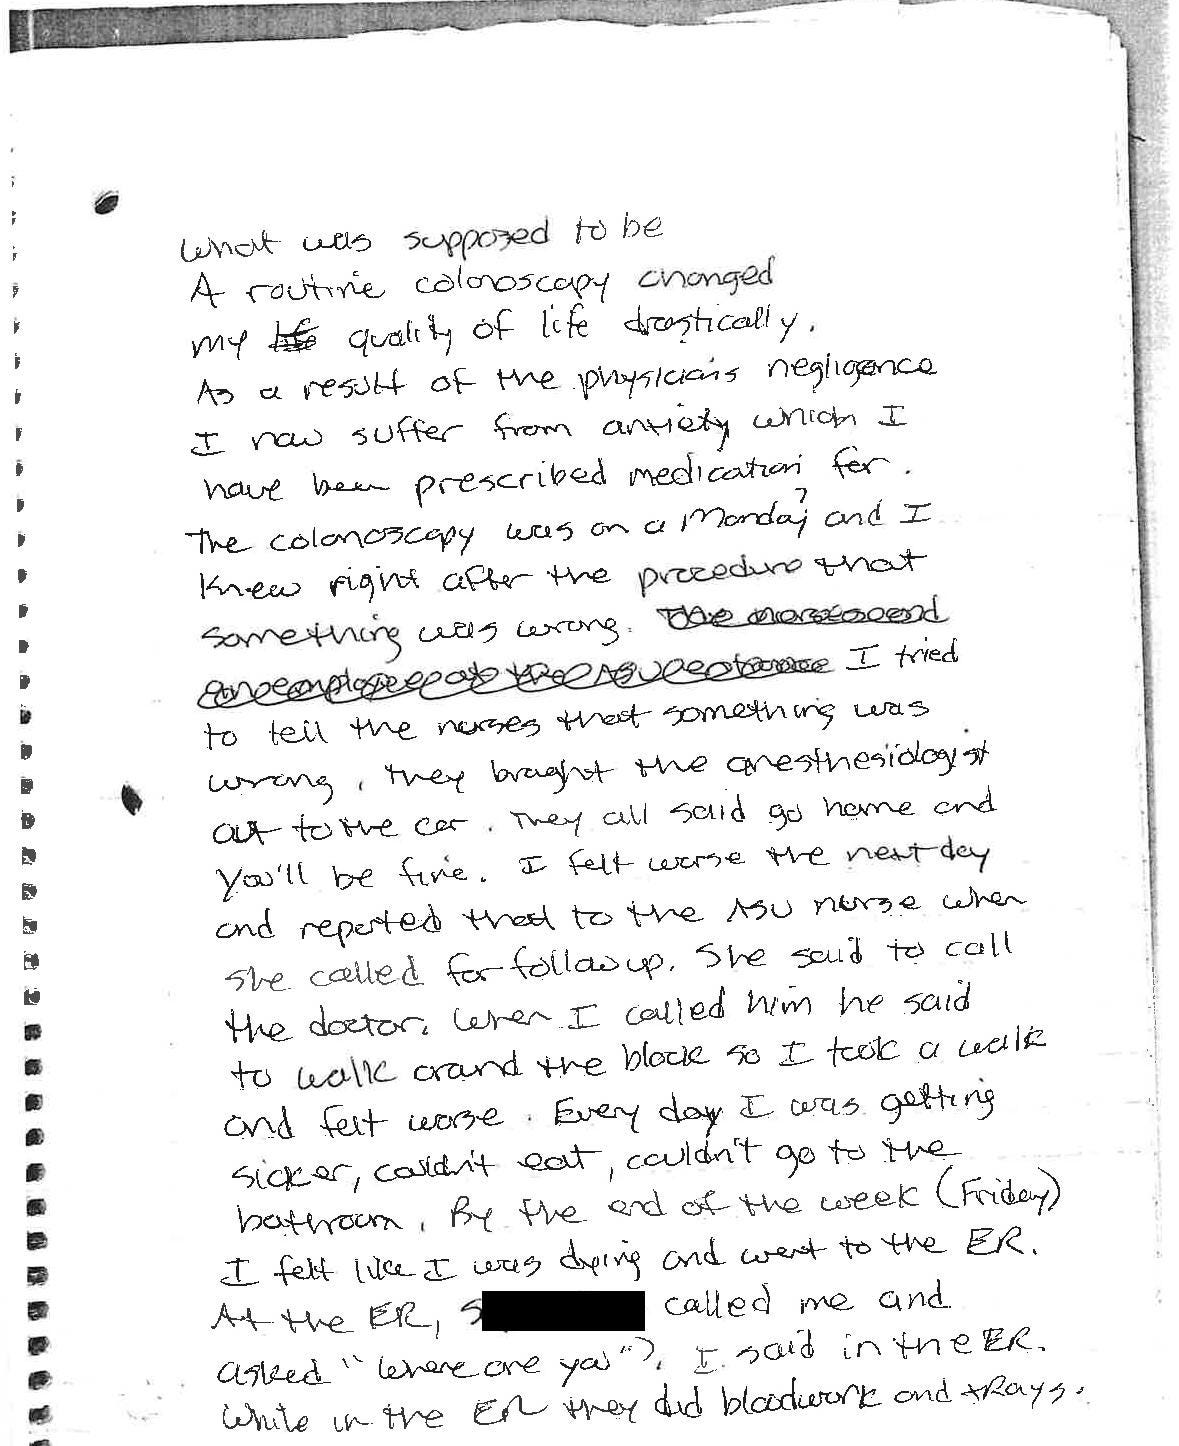 What was supposed to be
A routine colonoscopy changed
my life quality of life drastically.
As a result of the physician's negligence
I now suffer from anxiety which I
have been prescribed medication for.
The colonoscopy was on a Monday and I
knew right after the procedure that
something was wrong. The
I tried
to tell the nurses that something was
wrong, they brought the anesthesiologist
out to the car. They all said go home and
you'll be fine. I felt worse the next day
and reported that to the ASU nurse when
she called for followup. She said to call
the doctor. When I called him he said
to walk around the block so I took a walk
and felt worse. Every day I was getting
sicker, couldn't eat, couldn't go to the
bathroom. By the end of the week (Friday)
I felt like I was dying and went to the ER.
At the ER, S called me and
asked "Where are you"?. I said in the ER.
While in the ER they did bloodwork and xRays.